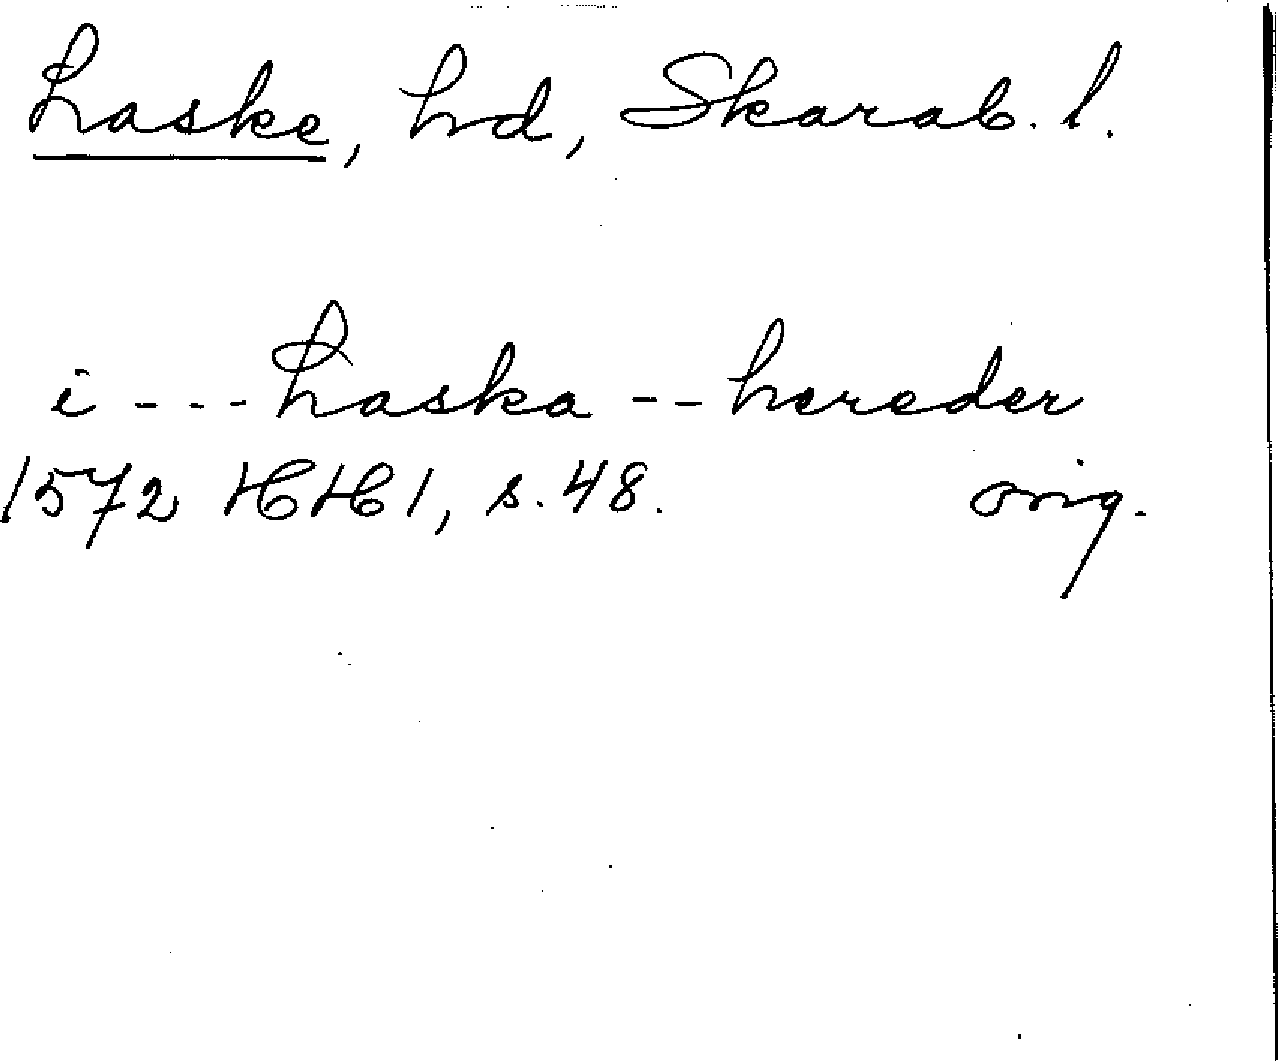 Laske, hd, Skarab. l.
i --- Laska -- hereder
1572 HH 1, s. 48. orig.